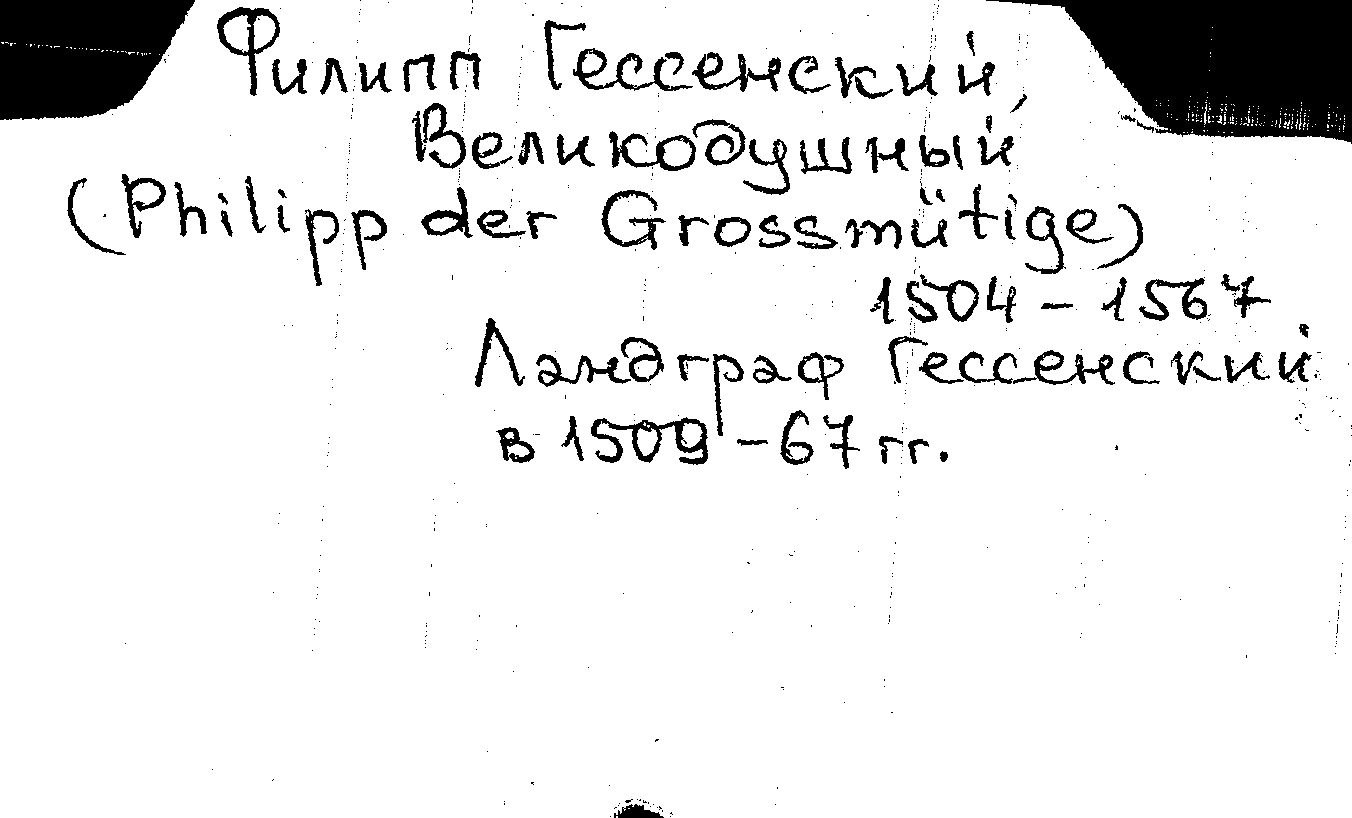 Филипп Гессенский,
Великодушный
(Philipp der Grossmütige)
1504 - 1567
Ландграф Гессенский
в 1509 - 67 гг.